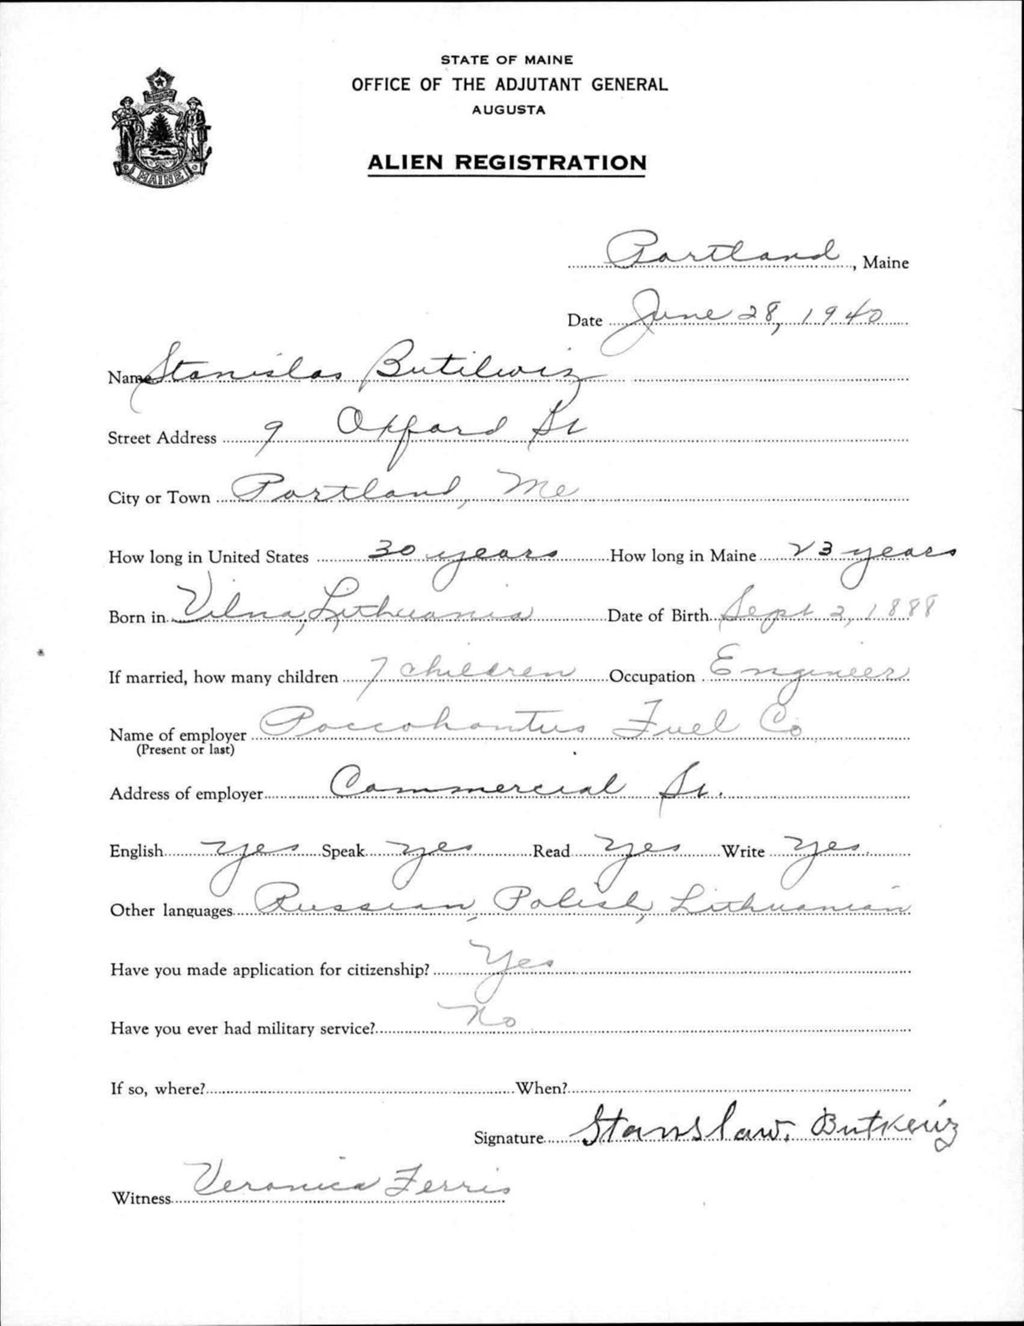 STATE OF MAINE
OFFICE OF THE ADJUTANT GENERAL
AUGUSTA
ALIEN REGISTRATION
MAINE
Portland, Maine
Date June 28, 1940
Name Stanislas Butilwiz
Street Address 9 Oxford St
City or Town Portland, Me
How long in United States 30 years How long in Maine 23 years
Born in Vilna, Lithuania Date of Birth Sept 2, 1888
If married, how many children 7 children Occupation Engineer
Name of employer Poccohontus Fuel Co
(Present or last)
Address of employer Commercial St.
English Yes Speak yes Read Yes Write Yes.
Other languages Russian, Polish, Lithuanian
Have you made application for citizenship? Yes
Have you ever had military service? No
If so, where? When?
Signature Stanslaw. Butkewiz
Witness Veronica Ferris